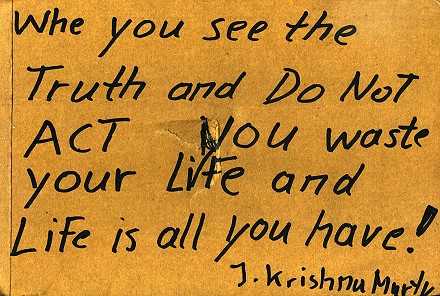 Whe you see the
Truth and Do NoT
ACT You waste
your Life and
Life is all you have!
J. Krishna Murty